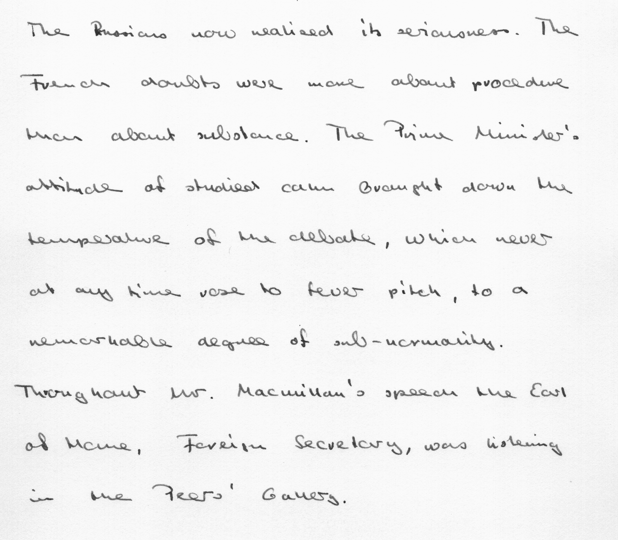 The Russians now realised its seriousness. The
French doubts were more about procedure
than about substance. The Prime Minister's
attitude of studied calm brought down the
temperature of the debate, which never
at any time rose to fever pitch, to a
remarkable degree of sub-normality.
Throughout Mr. Macmillan's speech the Earl
of Home, Foreign Secretary, was listening
in the Peers' Gallery.